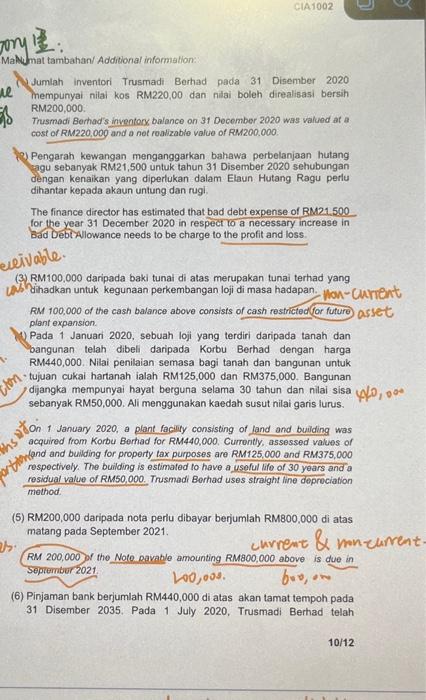 CIA1002
Maklumat tambahan/ Additional information:
Jumlah inventori Trusmadi Berhad pada 31 Disember 2020
mempunyai nilai kos RM220,00 dan nilai boleh direalisasi bersih
RM200,000.
Trusmadi Berhad's inventory balance on 31 December 2020 was valued at a
cost of RM220,000 and a net realizable value of RM200,000.
Pengarah kewangan menganggarkan bahawa perbelanjaan hutang
ragu sebanyak RM21,500 untuk tahun 31 Disember 2020 sehubungan
dengan kenaikan yang diperlukan dalam Elaun Hutang Ragu perlu
dihantar kepada akaun untung dan rugi.
The finance director has estimated that bad debt expense of RM21,500
for the year 31 December 2020 in respect to a necessary increase in
Bad Debt Allowance needs to be charge to the profit and loss.
receivable.
(3) RM100,000 daripada baki tunai di atas merupakan tunai terhad yang
cash dihadkan untuk kegunaan perkembangan loji di masa hadapan.
non-current
RM 100,000 of the cash balance above consists of cash restricted for future asset
plant expansion.
Pada 1 Januari 2020, sebuah loji yang terdiri daripada tanah dan
bangunan telah dibeli daripada Korbu Berhad dengan harga
RM440,000. Nilai penilaian semasa bagi tanah dan bangunan untuk
tujuan cukai hartanah ialah RM125,000 dan RM375,000. Bangunan
dijangka mempunyai hayat berguna selama 30 tahun dan nilai sisa
sebanyak RM50,000. Ali menggunakan kaedah susut nilai garis lurus.
440,000
On 1 January 2020, a plant facility consisting of land and building was
acquired from Korbu Berhad for RM440,000. Currently, assessed values of
land and building for property tax purposes are RM125,000 and RM375,000
respectively. The building is estimated to have a useful life of 30 years and a
residual value of RM50,000. Trusmadi Berhad uses straight line depreciation
method.
(5) RM200,000 daripada nota perlu dibayar berjumlah RM800,000 di atas
matang pada September 2021.
current & non-current
RM 200,000 of the Note payable amounting RM800,000 above is due in
September 2021.
200,000. 600,000
(6) Pinjaman bank berjumlah RM440,000 di atas akan tamat tempoh pada
31 Disember 2035. Pada 1 July 2020, Trusmadi Berhad telah
10/12